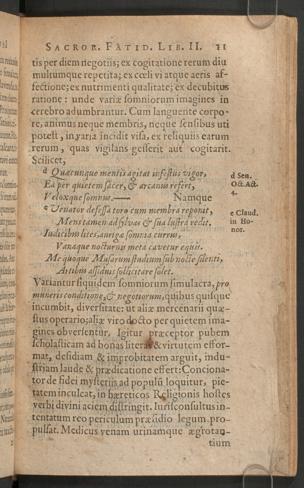 SACROR. FATID. LIB. II. 11
tis per diem negotiis; ex cogitatione rerum diu
multumque repetita; ex cœli vi atque aeris af-
fectione; ex nutrimenti qualitate; ex decubitus
ratione: unde variæ somniorum imagines in
cerebro adumbrantur. Cum languente corpo-
re, animus neque membris, neque sensibus uti
potest, in varia incidit visa, ex reliquiis earum
rerum, quas vigilans gesserit aut cogitarit.
Scilicet,
d Quæcunque mentis agitat infestus vigor,
d Sen.
Ea per quietem sacer, & arcanus refert,
Oct. Act.
Veloxque somnus.— Namque
4.
e Venator defessa toro cum membra reponit,
e Claud.
Mens tamen ad sylvas & sua lustra redit.
in Ho-
Judicibus lites, aurigæ somnia currus,
nor.
Vanaque nocturnis meta cavetur equis.
Me quoque Musarum studium sub nocte silenti,
Artibus assiduis sollicitare solet.
Variantur siquidem somniorum simulacra, pro
muneris conditione, & negotiorum, quibus quisque
incumbit, diversitate: ut aliæ mercenarii quæ-
stus operario; aliæ viro docto per quietem ima-
gines obversentur. Igitur præceptor pubem
scholasticam ad bonas literas & virtutem effor-
mat, desidiam & improbitatem arguit, indu-
striam laude & prædicatione effert: Conciona-
tor de fidei mysteriis ad populũ loquitur, pie-
tatem inculcat, in hæreticos Religionis hostes
verbi divini aciem distringit. Jurisconsultus in-
tentatum reo periculum præsidio legum pro-
pulsat. Medicus venam urinamque ægrotan-
tium